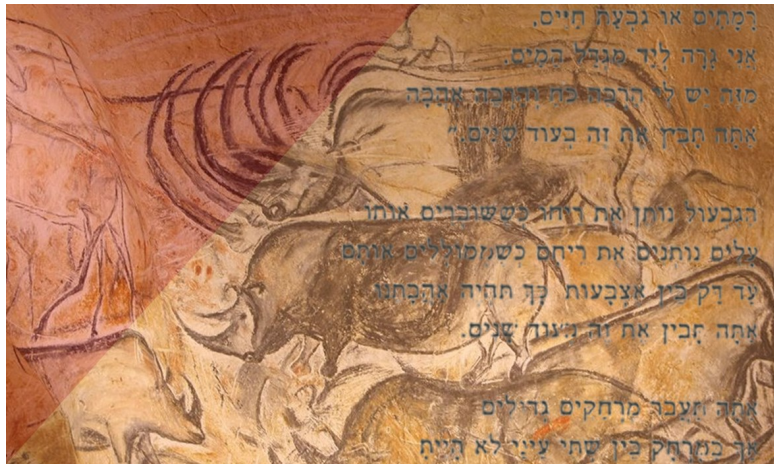 רָמָתַיִם אוֹ גִבְעַת חַיִּים,
אֲנִי גָּרָה לְיַד מִגְדַּל הַמַּיִם.
מִזֶּה יֵשׁ לִי הַרְבֵּה כֹּחַ וְהַרְבֵּה אַהֲבָה
אַתָּה תָּבִין אֶת זֶה בְּעוֹד שָׁנִים."
הַגִּבְעוֹל נוֹתֵן אֶת רֵיחוֹ אוֹתוֹ
עָלִים נוֹתְנִים אֶת רֵיחָם אוֹתָם
עַד דַּק בֵּין אֶצְבָּעוֹת כָּךְ תִּהְיֶה אַהֲבָתֵנוּ
אַתָּה תָּבִין אֶת זֶה שָׁנִים.
אַתָּה תַעֲבֹר מֶרְחַקִּים גְּדוֹלִים
אַךְ בַּמֶּרְחָק בֵּין שְׁתֵּי עֵינַי לֹא הָיִיתָ